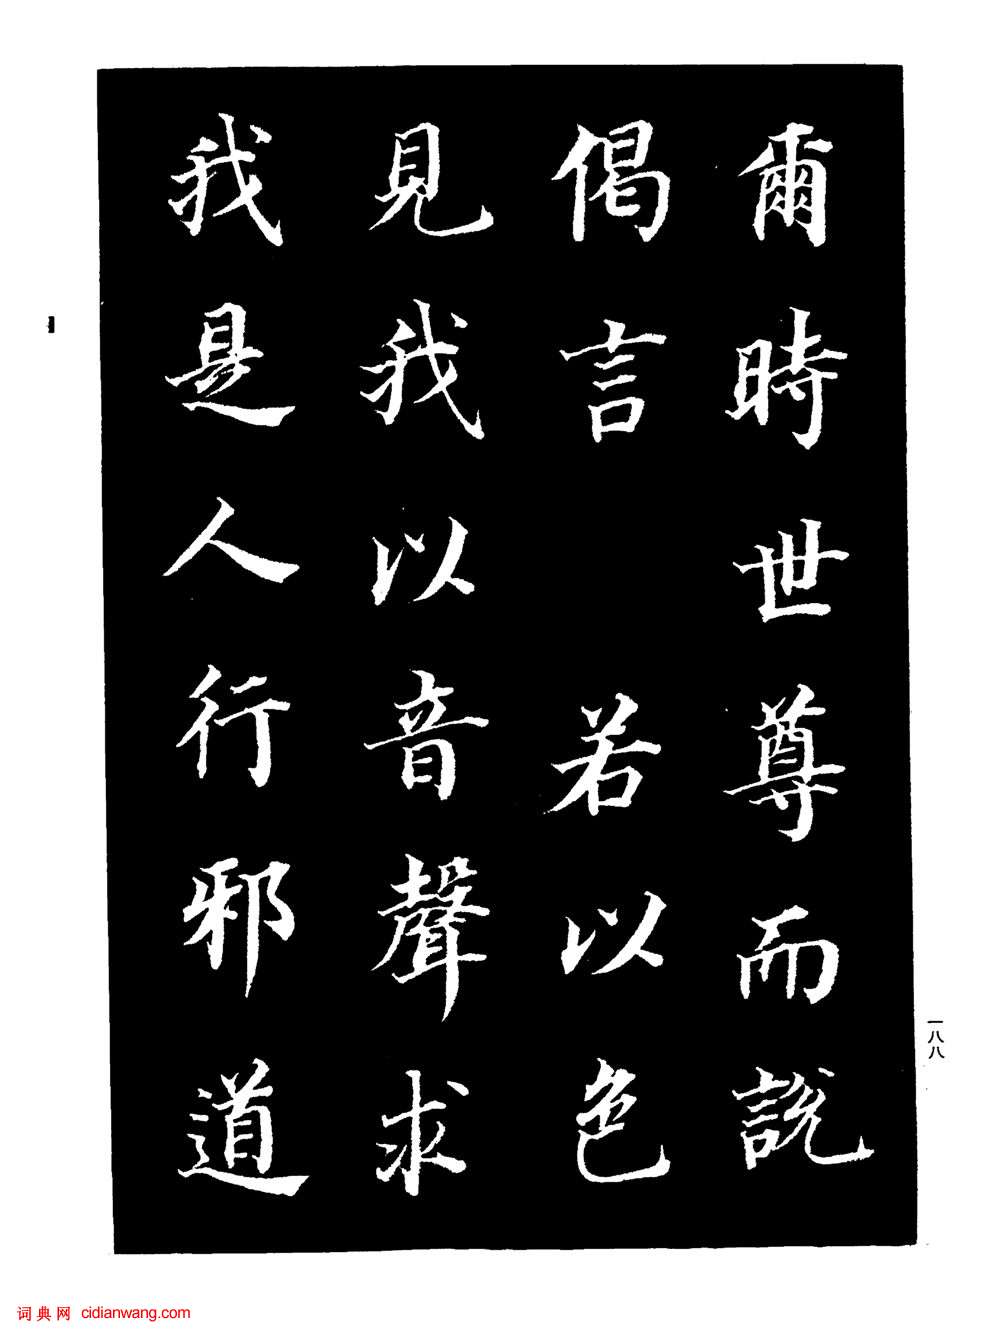 爾時世尊而說
偈言　若以色
見我以音聲求
我是人行邪道
一八八
词典网 cidianwang.com